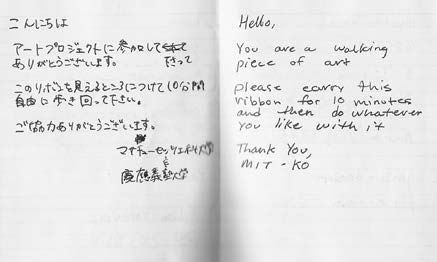 こんにちは
アートプロジェクトに参加して
下さって
ありがとうございます。
このリボンを見えるところにつけて10分間
自由に歩き回って下さい。
ご協力ありがとうございます。
マサチューセッツ工科大学
と
慶應義塾大学
Hello,
You are a walking
piece of art
please carry this
ribbon for 10 minutes
and then do whatever
you like with it
Thank You,
MIT - KO